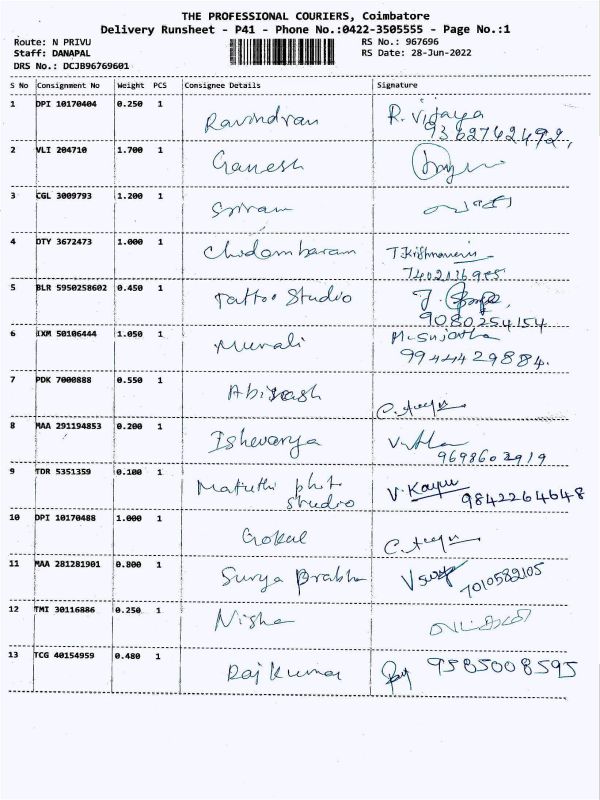 THE PROFESSIONAL COURIERS, Coimbatore
Delivery Runsheet - P41 - Phone No.:0422-3505555 - Page No.:1
Route: N PRIVU RS No.: 967696
Staff: DANAPAL RS Date: 28-Jun-2022
DRS No.: DCJB96769601
S No Consignment No Weight PCS Consignee Details Signature
1 DPI 10170404 0.250 1 Ravindran R. Vijaya
9362742492,
2 VLI 204710 1.700 1 Ganesh
3 CGL 3009793 1.200 1 Sriram
4 DTY 3672473 1.000 1 Chidambaram T. Krishnaveni
5 BLR 5950258602 0.450 1 Tattoo Studio J.
9080254154
6 IXM 50106444 1.050 1 Murali M. Sujatha
9944429884.
7 PDK 7000888 0.550 1 Abinash
8 MAA 291194853 0.200 1 Ishwarya
9698602919
9 TDR 5351359 0.100 1 Maruthi phot studio V. Kayu 9842264648
10 DPI 10170488 1.000 1 Gokul
11 MAA 281281901 0.800 1 Surya Prabha 7010582105
12 TMI 30116886 0.250 1 Nisha
13 TCG 40154959 0.480 1 Rajkumar 9585008595